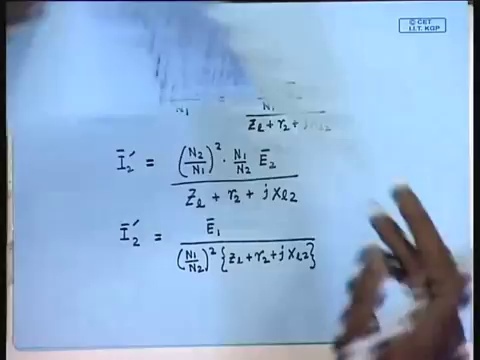 © CET
I.I.T. KGP
N₁ = N₁ / Z_ℓ + r₂ + j x_ℓ₂
Ī₂′ = (N₂/N₁)² · N₁/N₂ Ē₂ / Z_ℓ + r₂ + j x_ℓ₂
Ī₂′ = Ē₁ / (N₁/N₂)² {Z_ℓ + r₂ + j x_ℓ₂}